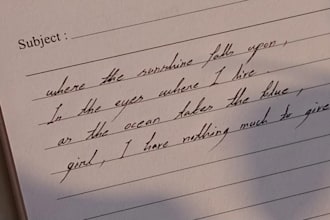 Subject :
where the sunshine falls upon,
In the eyes where I live
as the ocean takes the blue,
girl, I have nothing much to give